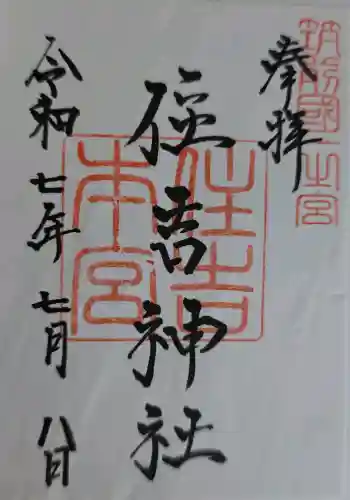 筑前國一之宮
奉拝
住吉神社
住吉本宮
令和七年七月八日